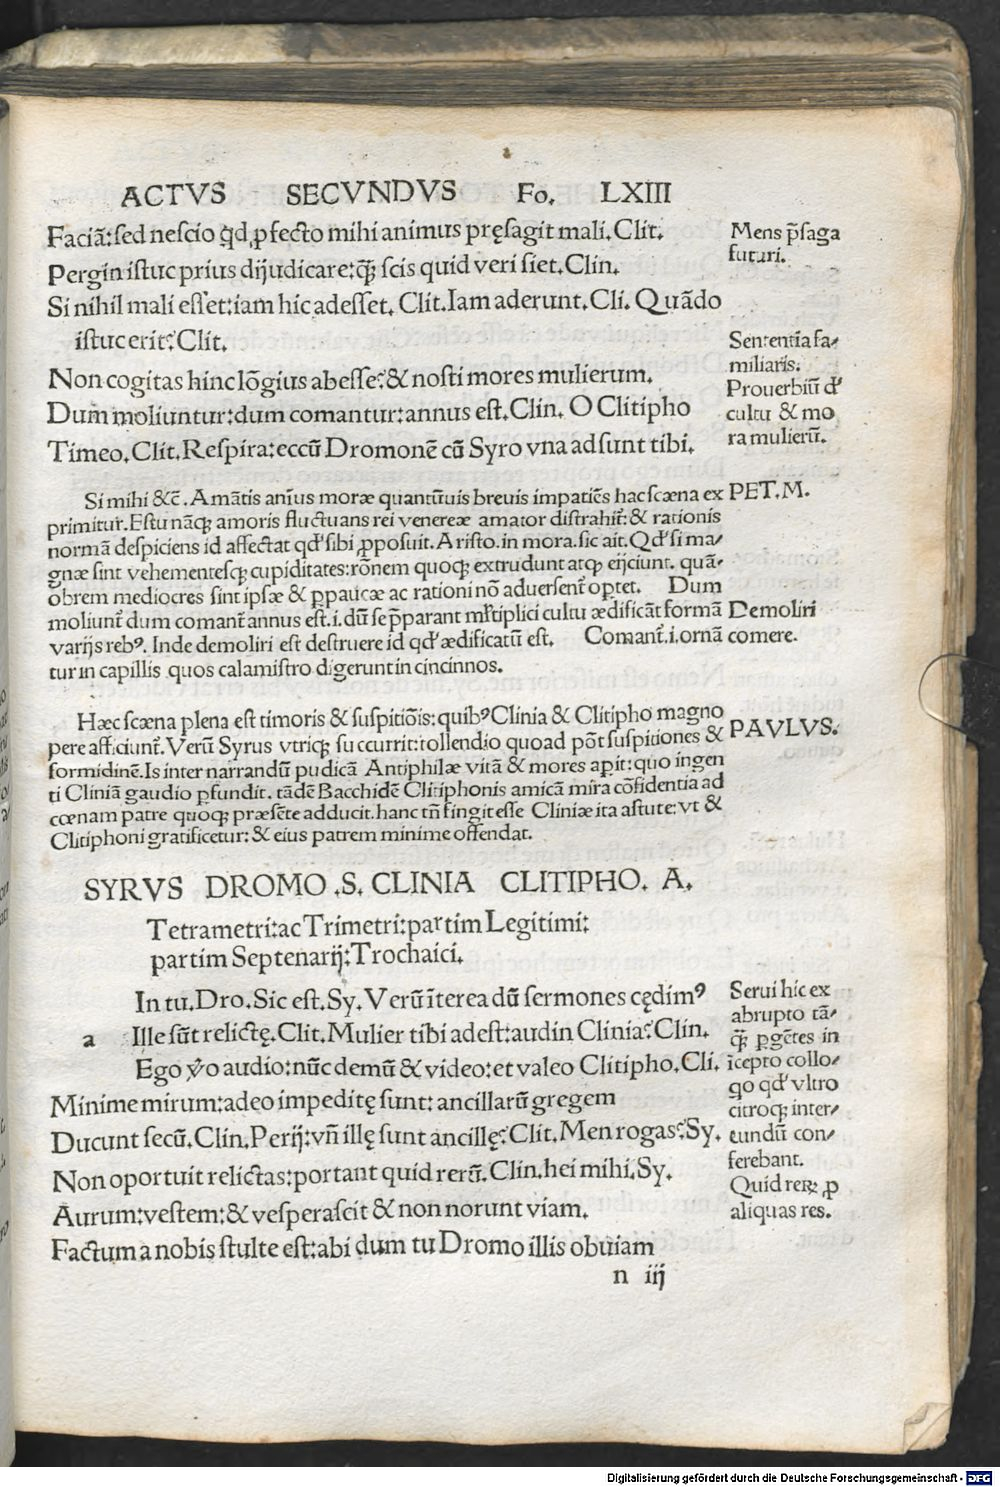 ACTVS SECVNDVS Fo. LXIII
Faciã: sed nescio qd, ꝓfecto mihi animus pręsagit mali. Clit.
Pergin istuc prius dijudicare: qȝ̃ scis quid veri siet. Clin.
Si nihil mali esset: iam hic adesset. Clit. Iam aderunt. Cli. Quãdo
istuc erit? Clit.
Non cogitas hinc lõgius abesse? & nosti mores mulierum.
Dum moliuntur: dum comantur: annus est. Clin. O Clitipho
Timeo. Clit. Respira: eccũ Dromonẽ cũ Syro vna adsunt tibi.
Mens p̃saga
futuri.
Sententia fa/
miliaris.
Prouerbiũ d'
cultu & mo
ra mulierũ.
Si mihi &c̃. Amãtis anĩus moræ quantũuis breuis impatiẽs hac scæna ex
primitur. Estu nãqȝ amoris fluctuans rei venereæ amator distrahit̃: & rationis
normã despiciens id affectat qd' sibi ꝓposuit. Aristo. in mora. sic ait. Qd' si ma/
gnæ sint vehementesqȝ cupiditates: rõnem quoqȝ extrudunt atqȝ eijciunt. quã/
obrem mediocres sint ipsæ & ꝑpaucæ ac rationi nõ aduersent̃ oꝑtet. Dum
moliunt̃ dum comant̃ annus est. i. dũ se p̃parant mĺtiplici cultu ædificãt formã
varijs rebꝰ. Inde demoliri est destruere id qd' ædificatũ est. Comant̃. i. ornã
tur in capillis quos calamistro digerunt in cincinnos.
PET. M.
Demoliri
comere.
Hæc scæna plena est timoris & suspitiõis: quibꝰ Clinia & Clitipho magno
pere afficiunt̃. Verũ Syrus vtriqȝ succurrit: tollendio quoad põt suspitiones &
formidinẽ. Is inter narrandũ pudicã Antiphilæ vitã & mores aꝑit: quo ingen
ti Cliniã gaudio ꝑfundit. tãdẽ Bacchidẽ Clitiphonis amicã mira cõfidentia ad
cœnam patre quoqȝ præsẽte adducit. hanc tñ fingit esse Cliniæ ita astute: vt &
Clitiphoni gratificetur: & eius patrem minime offendat.
PAVLVS.
SYRVS DROMO .S. CLINIA CLITIPHO. A.
Tetrametri: ac Trimetri: partim Legitimi:
partim Septenarij: Trochaici.
In tu. Dro. Sic est. Sy. Verũ ĩterea dũ sermones cędimꝰ
a Ille sũt relictę. Clit. Mulier tibi adest: audin Clinia? Clin.
Ego v̊o audio: nũc demũ & video: et valeo Clitipho. Cli.
Minime mirum: adeo impeditę sunt: ancillarũ gregem
Ducunt secũ. Clin. Perij: vñ illę sunt ancillę? Clit. Men rogas? Sy.
Non oportuit relictas: portant quid rerũ. Clin. hei mihi. Sy.
Aurum: vestem: & vesperascit & non norunt viam.
Factum a nobis stulte est: abi dum tu Dromo illis obuiam
Serui hic ex
abrupto tã/
qȝ̃ ꝑgẽtes in
ĩcepto collo/
qo qd' vltro
citroqȝ inter/
eundũ con/
ferebant.
Quid reꝝ ꝓ
aliquas res.
n iij
Digitalisierung gefördert durch die Deutsche Forschungsgemeinschaft - DFG